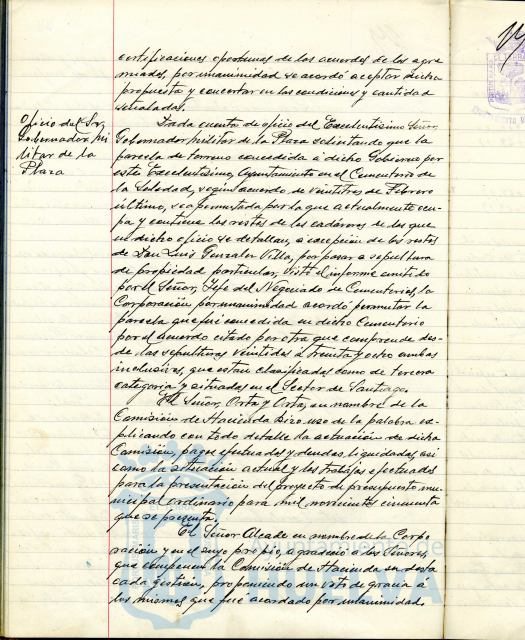 certificaciones oportunas de los acuerdos de los agre
miados, por unanimidad se acordó aceptar dicha
propuesta y concertar en las condiciones y cantidad
señaladas.
Oficio del Sr.
Gobernador Mi
litar de la
Plaza
Dada cuenta de oficio del Excelentísimo Señor
Gobernador Militar de la Plaza solicitando que la
parcela de terreno concedida a dicho Gobierno por
este Excelentísimo Ayuntamiento en el Cementerio de
la Soledad, según acuerdo de veintitres de Febrero
último, sea permutada por la que actualmente ocu-
pa y contiene los restos de los cadáveres de los que
en dicho oficio se detallan, a excepción de los restos
de Don Luis Gonzalez Villa, por pasar a sepultura
de propiedad particular, visto el informe emitido
por el Señor Jefe del Negociado de Cementerios, la
Corporación por unanimidad acordó permutar la
parcela que fué concedida en dicho Cementerio
por el acuerdo citado por otra que comprende des-
de las sepulturas veintidos a treinta y ocho ambas
inclusives, que están clasificadas como de tercera
categoría y situadas en el Sector de Santiago.
El Señor Orta y Orta, en nombre de la
Comisión de Hacienda hizo uso de la palabra ex-
plicando con todo detalle la actuación de dicha
Comisión, pagos efectuados y deudas liquidadas, así
como la situación actual y los trabajos efectuados
para la presentación del proyecto de presupuesto mu-
nicipal ordinario para mil novecientos cincuenta
que se presenta.
El Señor Alcalde en nombre de la Corpo
ración y en el suyo propio, agradeció a los Señores,
que componen la Comisión de Hacienda su desta
cada gestión, proponiendo un voto de gracia á
los mismos que fué acordado por unanimidad.
Ayuntamiento de
HUELVA